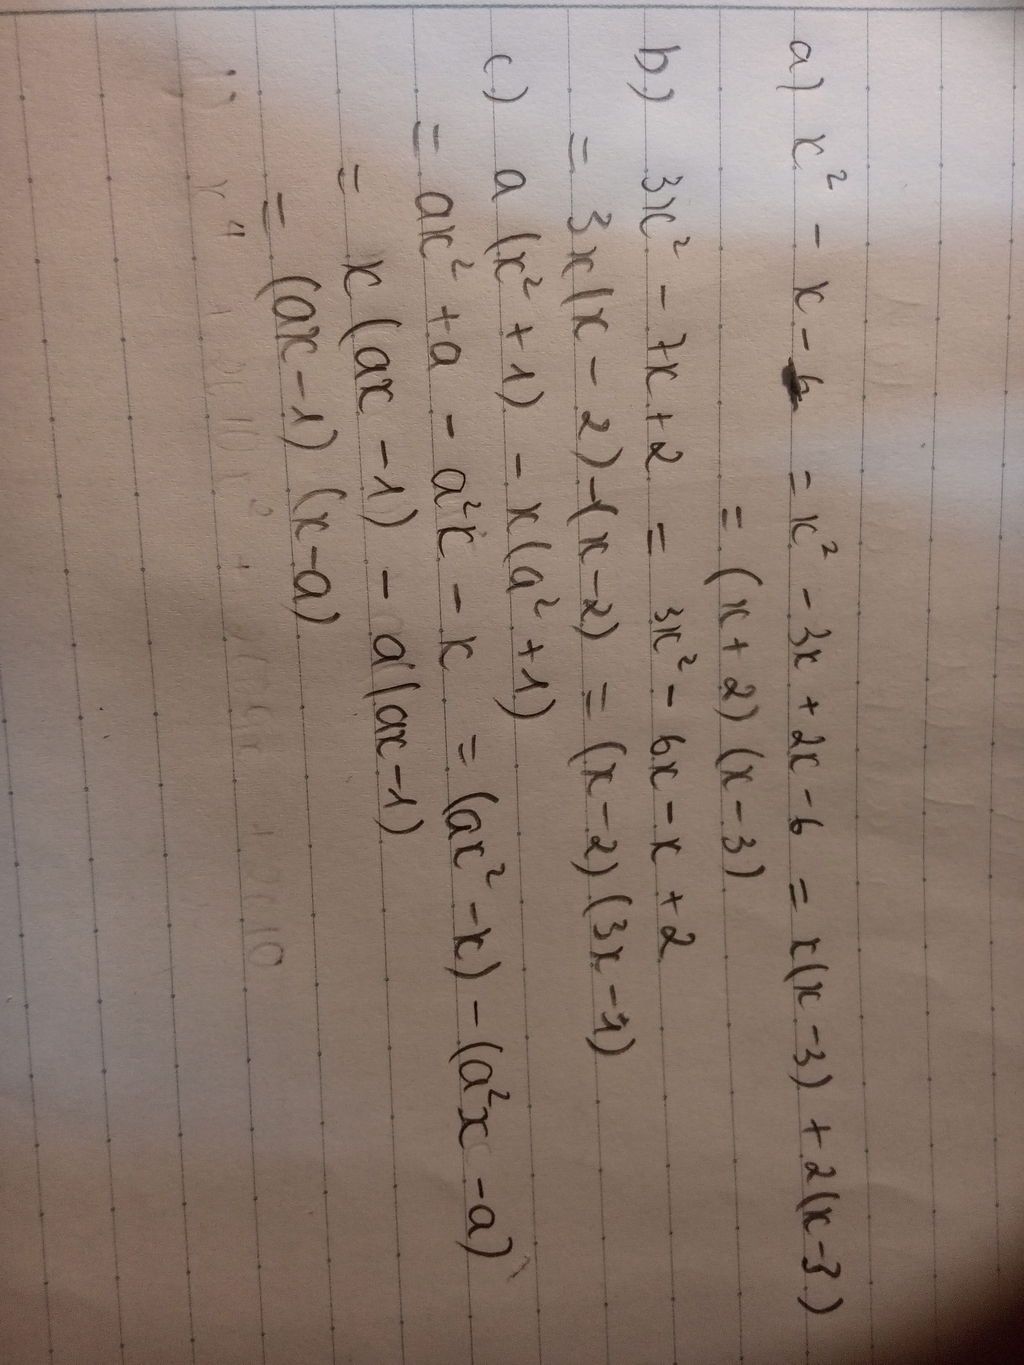 a) x² - x - 6 = x² - 3x + 2x - 6 = x(x - 3) + 2(x - 3)
= (x + 2) (x - 3)
b) 3x² - 7x + 2 = 3x² - 6x - x + 2
= 3x(x - 2) - (x - 2) = (x - 2) (3x - 1)
c) a (x² + 1) - x(a² + 1)
= ax² + a - a²x - x = (ax² - x) - (a²x - a)
= x (ax - 1) - a(ax - 1)
= (ax - 1) (x - a)